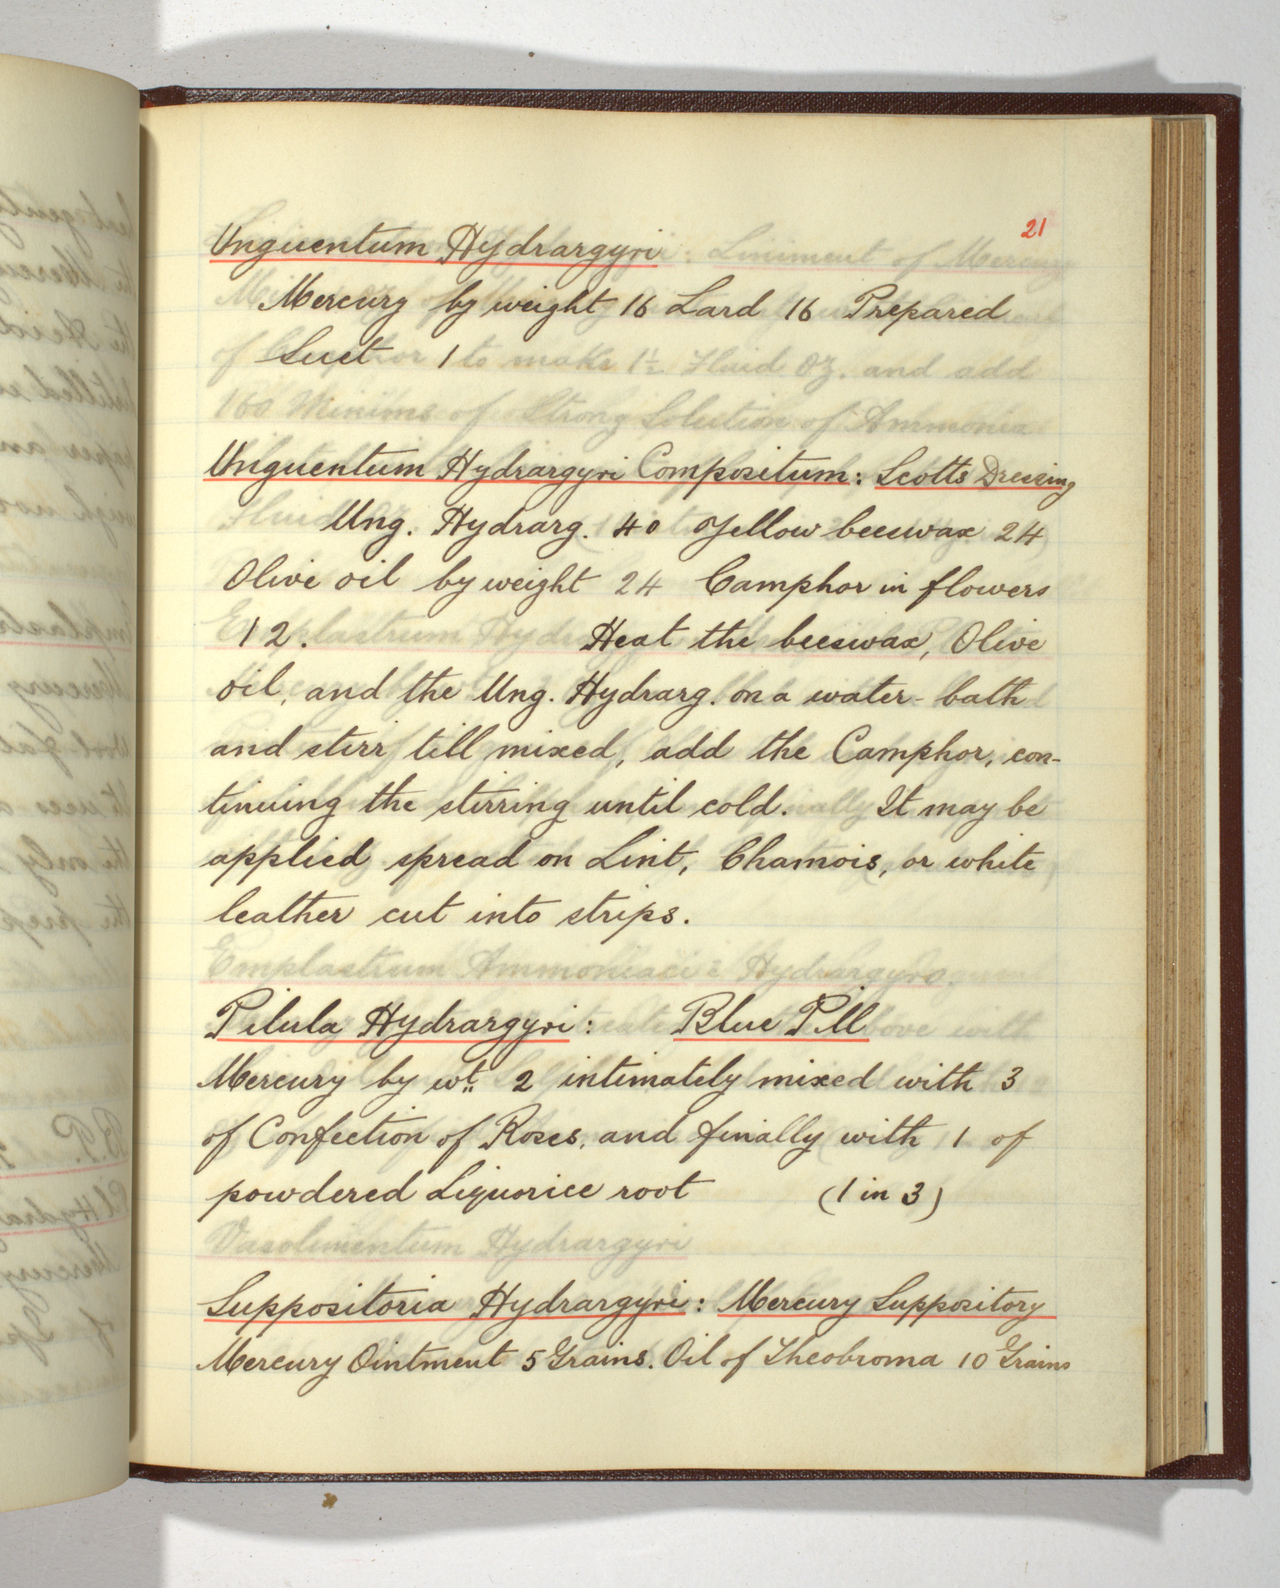 21
Unguentum Hydrargyri
Mercury by weight 16 Lard 16 Prepared
Suet 1
Unguentum Hydrargyri Compositum: Scotts Dressing
Ung. Hydrarg. 40 Yellow beeswax 24
Olive oil by weight 24 Camphor in flowers
12. Heat the beeswax, Olive
oil, and the Ung. Hydrarg. on a water-bath
and stirr till mixed, add the Camphor, con-
tinuing the stirring until cold. It may be
applied spread on Lint, Chamois, or white
leather cut into strips.
Pilula Hydrargyri: Blue Pill
Mercury by wt. 2 intimately mixed with 3
of Confection of Roses, and finally with 1 of
powdered Liquorice root (1 in 3)
Suppositoria Hydrargyri: Mercury Suppository
Mercury Ointment 5 Grains. Oil of Theobroma 10 Grains